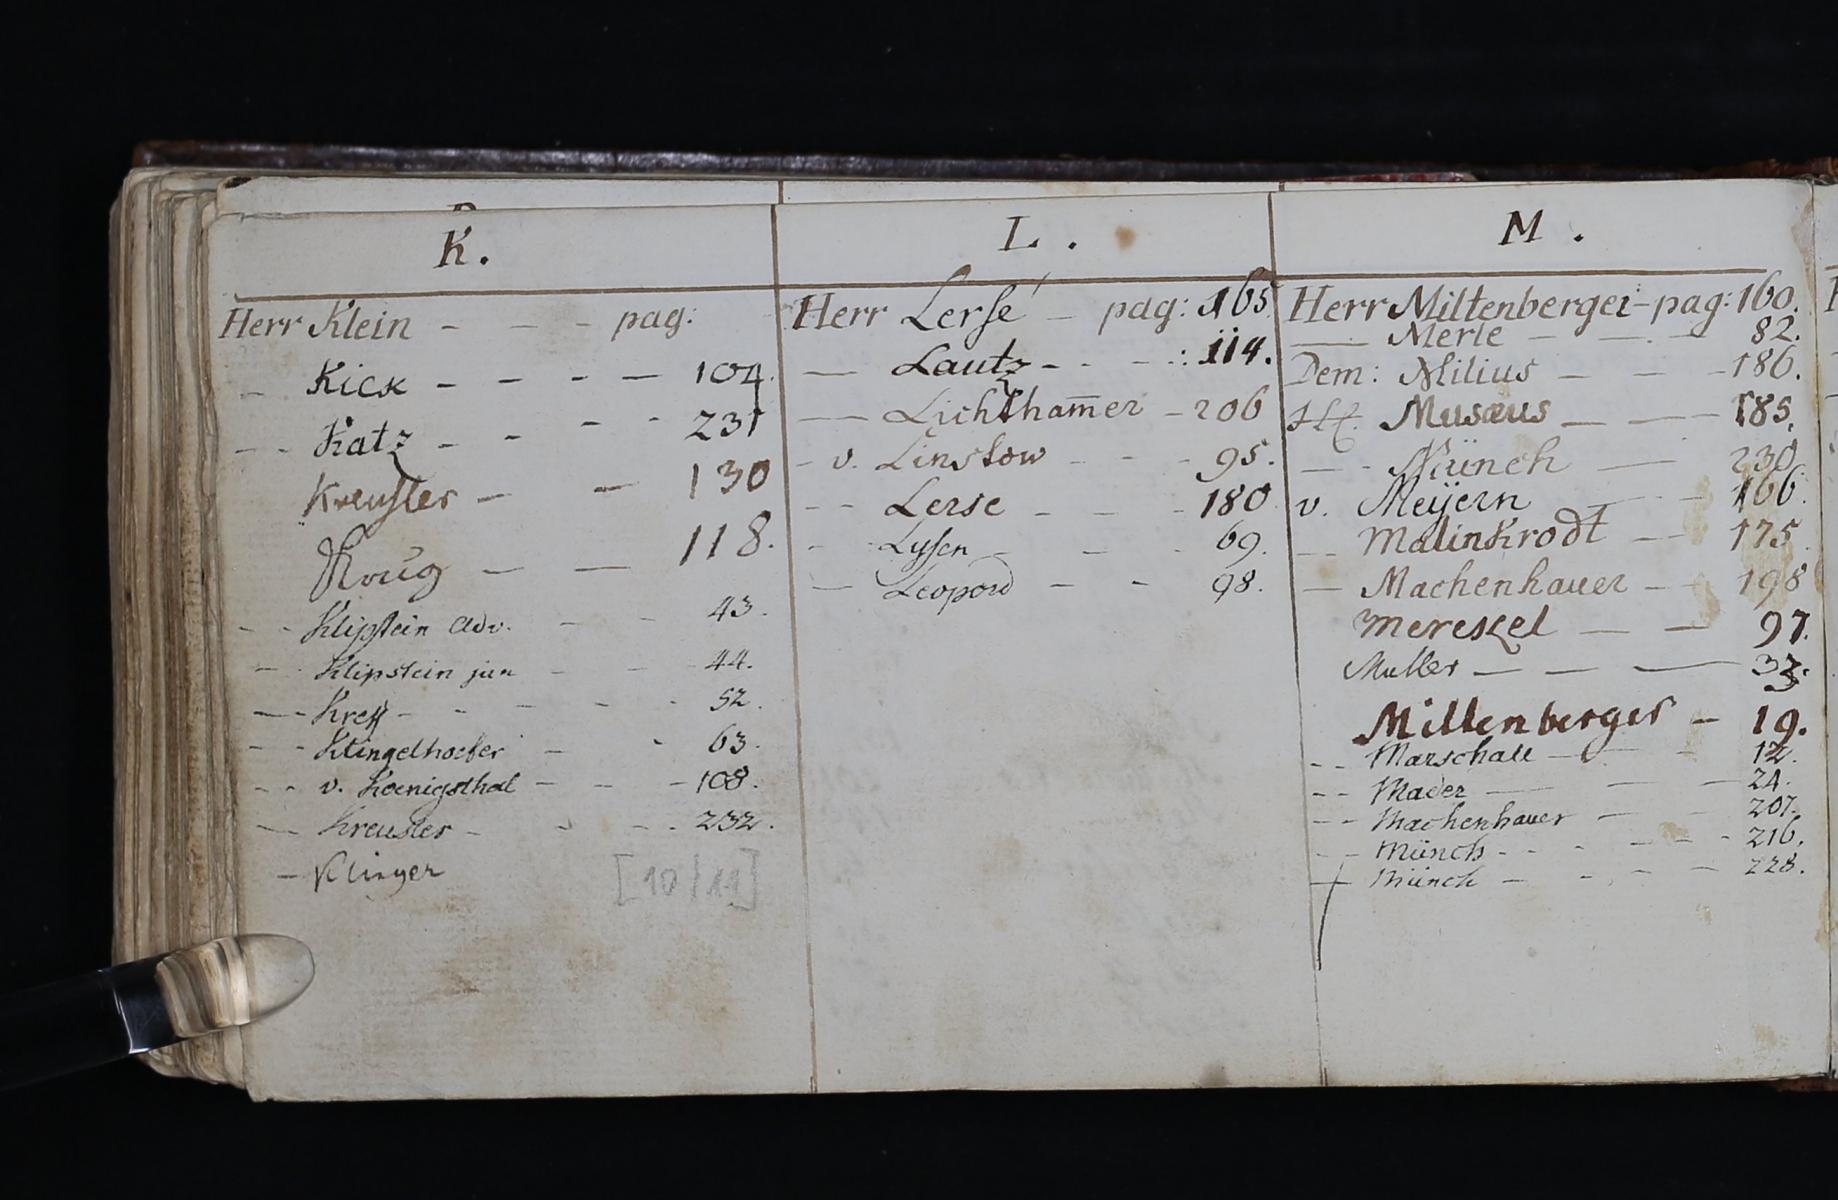 K.
Herr Klein - - - pag:
- Kick - - - - 104.
- - Katz - - - - 231
Kreusler - - 130
Krug - - 118.
- - Klipstein Adv. - - 43.
- - Klipstein jun - - - 44.
- - Kreß - - - - - 52.
- - Klingelhoefer - - 63.
- - v. Koenigsthal - - - 108.
- - Kreusler - - - - 232.
- Klinger [10/11]
L.
Herr Lersé - pag: 165
- Lautz - - - : 114.
- Lichtham̅er - 206
- v. Linstow - - - 95.
- - Lerse - - - 180
- Lysen - - - 69.
- Leopold - - - 98.
M.
Herr Miltenberger - pag: 160.
- Merle - - - 82.
Dem: Milius - - - 186.
H. Musæus - - 185.
- - Münch - 230
v. Meÿern - - 166.
- - Malinkrodt - - 175.
- Machenhauer - - 198
Mereskel - - 97.
Muller - - - 33.
Miltenberger - 19.
- - Marschall - - - 12.
- - Mader - - - 24.
- - Machenhauer - - 207.
- - Münch - - - - - - 216.
- Münch - - - - - 228.